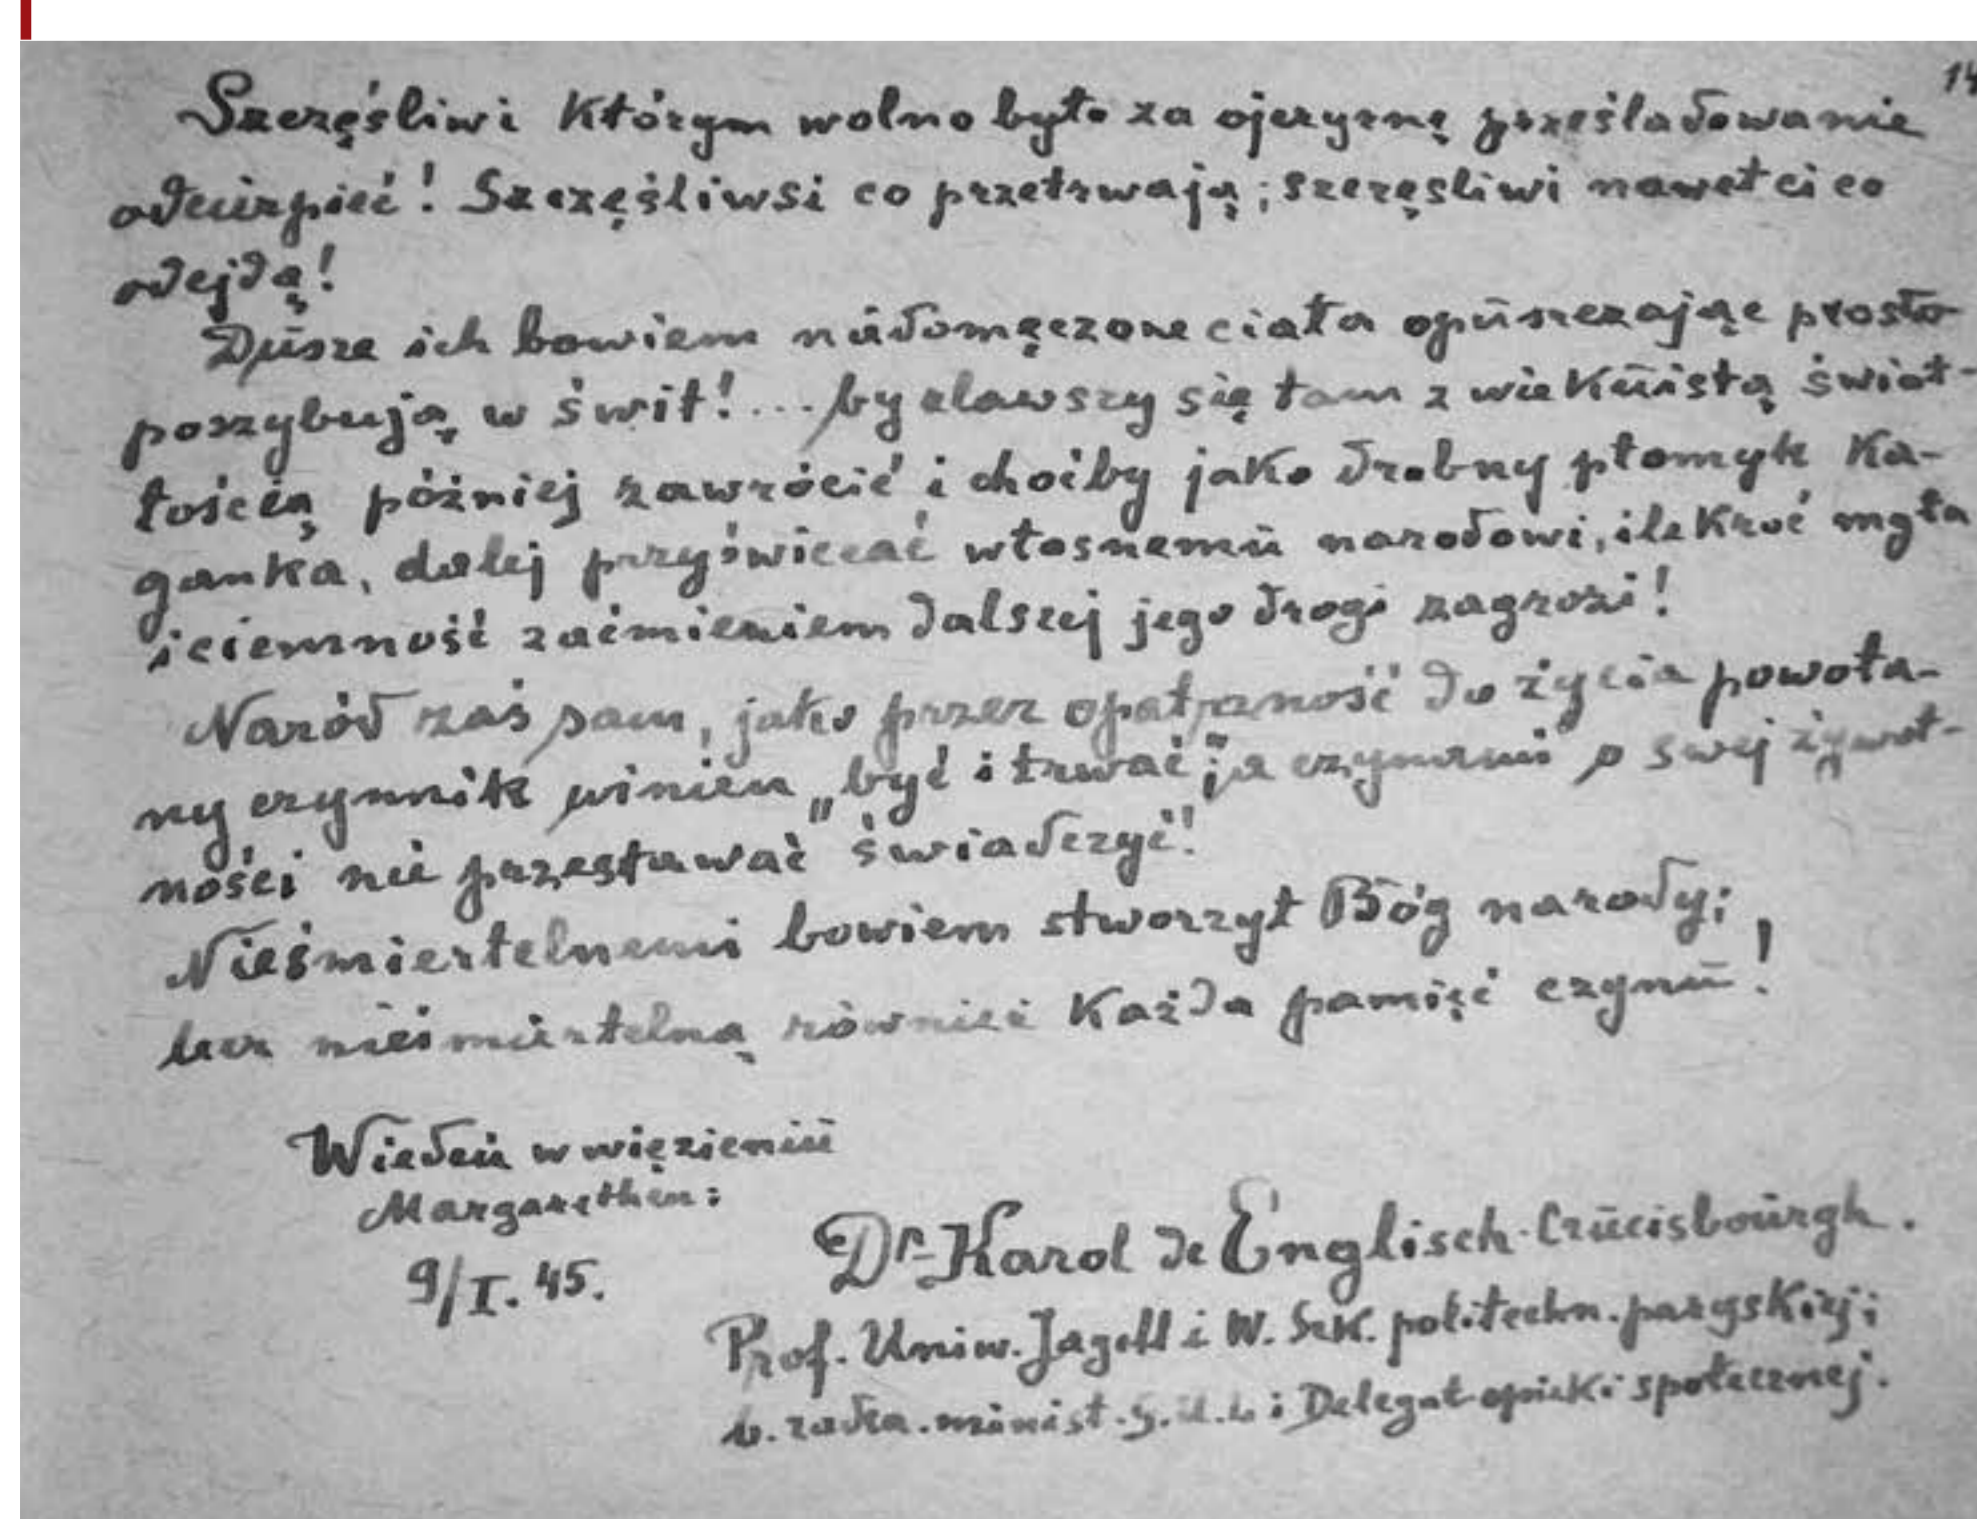 14
Szczęśliwi którym wolno było za ojczyznę prześladowanie
odcierpieć! Szczęśliwsi co przetrwają; szczęsliwi nawet ci co
odejdą!
Dusze ich bowiem nadomęczone ciała opuszczając prosto
poszybują w świt!... by zlawszy się tam z wiekuistą świat-
łością później zawrócić i choćby jako drobny płomyk ka-
ganka, dalej przyświecać własnemu narodowi, ilekroć mgła
i ciemność zaćmieniem dalszej jego drogi zagrozi!
Naród zaś sam, jako przez opatrzność do życia powoła-
ny czynnik winien „być i trwać”; a czynami o swej żywot-
ności nie przestawać świadczyć!
Nieśmiertelnemi bowiem stworzył Bóg narody;
lecz nieśmiertelną również każda pamięć czynu!
Wiedeń w więzieniu
Margarethen:
9/I. 45.
Dr Karol de Englisch-Crucisbourgh.
Prof. Uniw. Jagell i W. Szk. politechn. paryskiej;
b. radca. minist. i Delegat opieki społecznej.